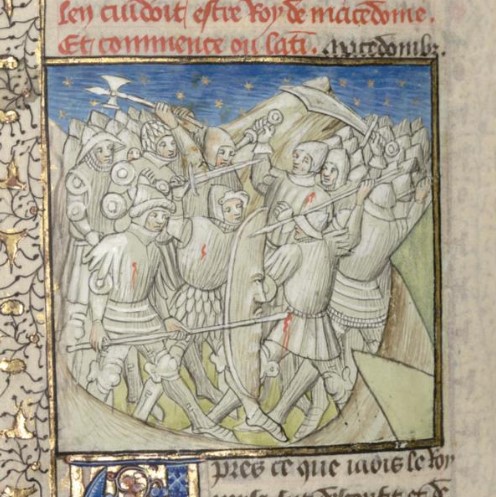 len cuidoit estre Roy de macedome.
Et commence ou lati. macedomibz.
pres ce que iadis le Roy